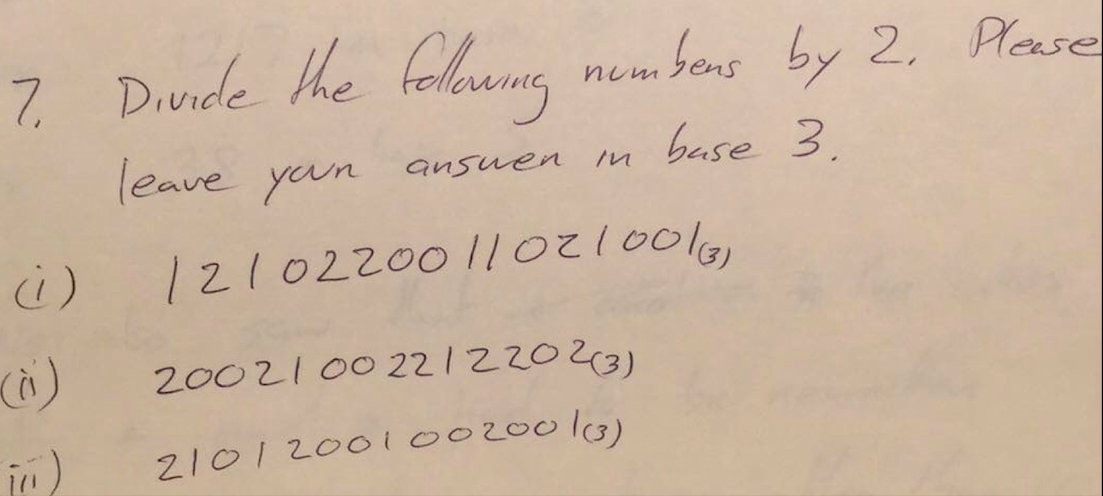 7. Divide the following numbers by 2. Please
leave your answer in base 3.
(i) 1210220011021001(3)
(ii) 20021002212202(3)
iii) 21012001002001(3)